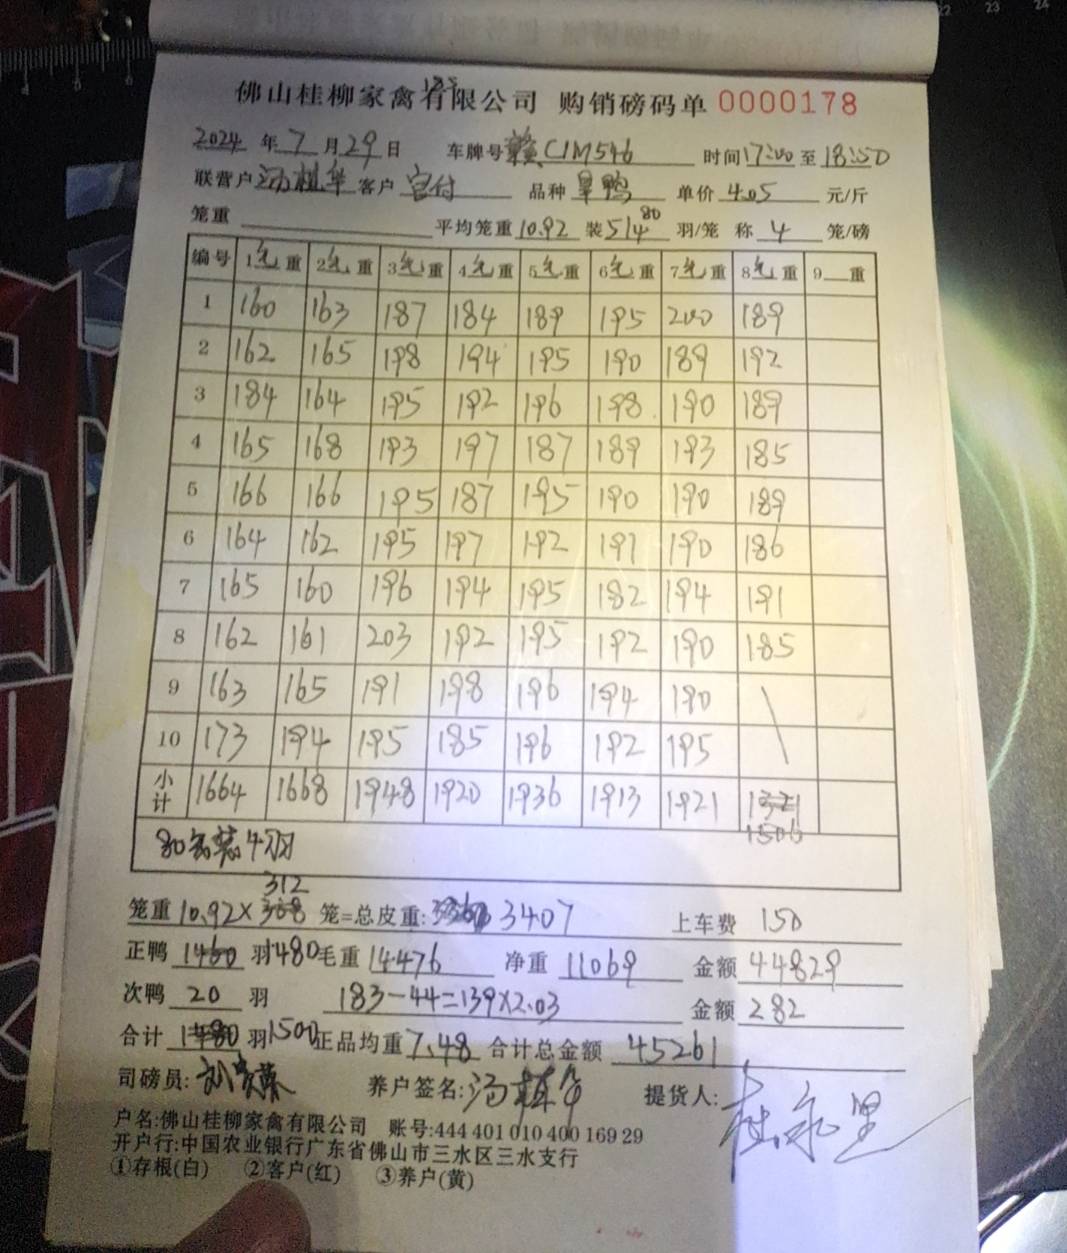 佛山桂柳家禽有限公司 购销磅码单 0000178
2024 年 7 月 29 日 车牌号 赣C1M546 时间 17:00 至 18:50
联营户 汤植华 客户 品种 单价 4.05 元/斤
笼重 平均笼重 10.92 装 5/4 80 羽/笼 称 4 笼/磅
编号 1毛重 2毛重 3毛重 4毛重 5毛重 6毛重 7毛重 8毛重 9 重
1 160 163 187 184 189 195 200 189
2 162 165 198 194 195 190 189 192
3 184 164 195 192 196 198 190 189
4 165 168 193 197 187 189 193 185
5 166 166 195 187 195 190 190 189
6 164 162 195 197 192 191 190 186
7 165 160 196 194 195 182 194 191
8 162 161 203 192 195 192 190 185
9 163 165 191 198 196 194 190
10 173 194 195 185 196 192 195
小计 1664 1668 1948 1920 1936 1913 1921
1506
80 装4羽
312
笼重 10.92× 308 笼=总皮重: 3407 上车费 150
正鸭 1460 羽 1480 毛重 14476 净重 11069 金额 44829
次鸭 20 羽 183-44=139×2.03 金额 282
合计 1480 羽 1500 正品均重 7.48 合计总金额 45261
司磅员: 养户签名: 汤植华 提货人:
户名:佛山桂柳家禽有限公司 账号:444 401 010 400 169 29
开户行:中国农业银行广东省佛山市三水区三水支行
①存根(白) ②客户(红) ③养户(黄)